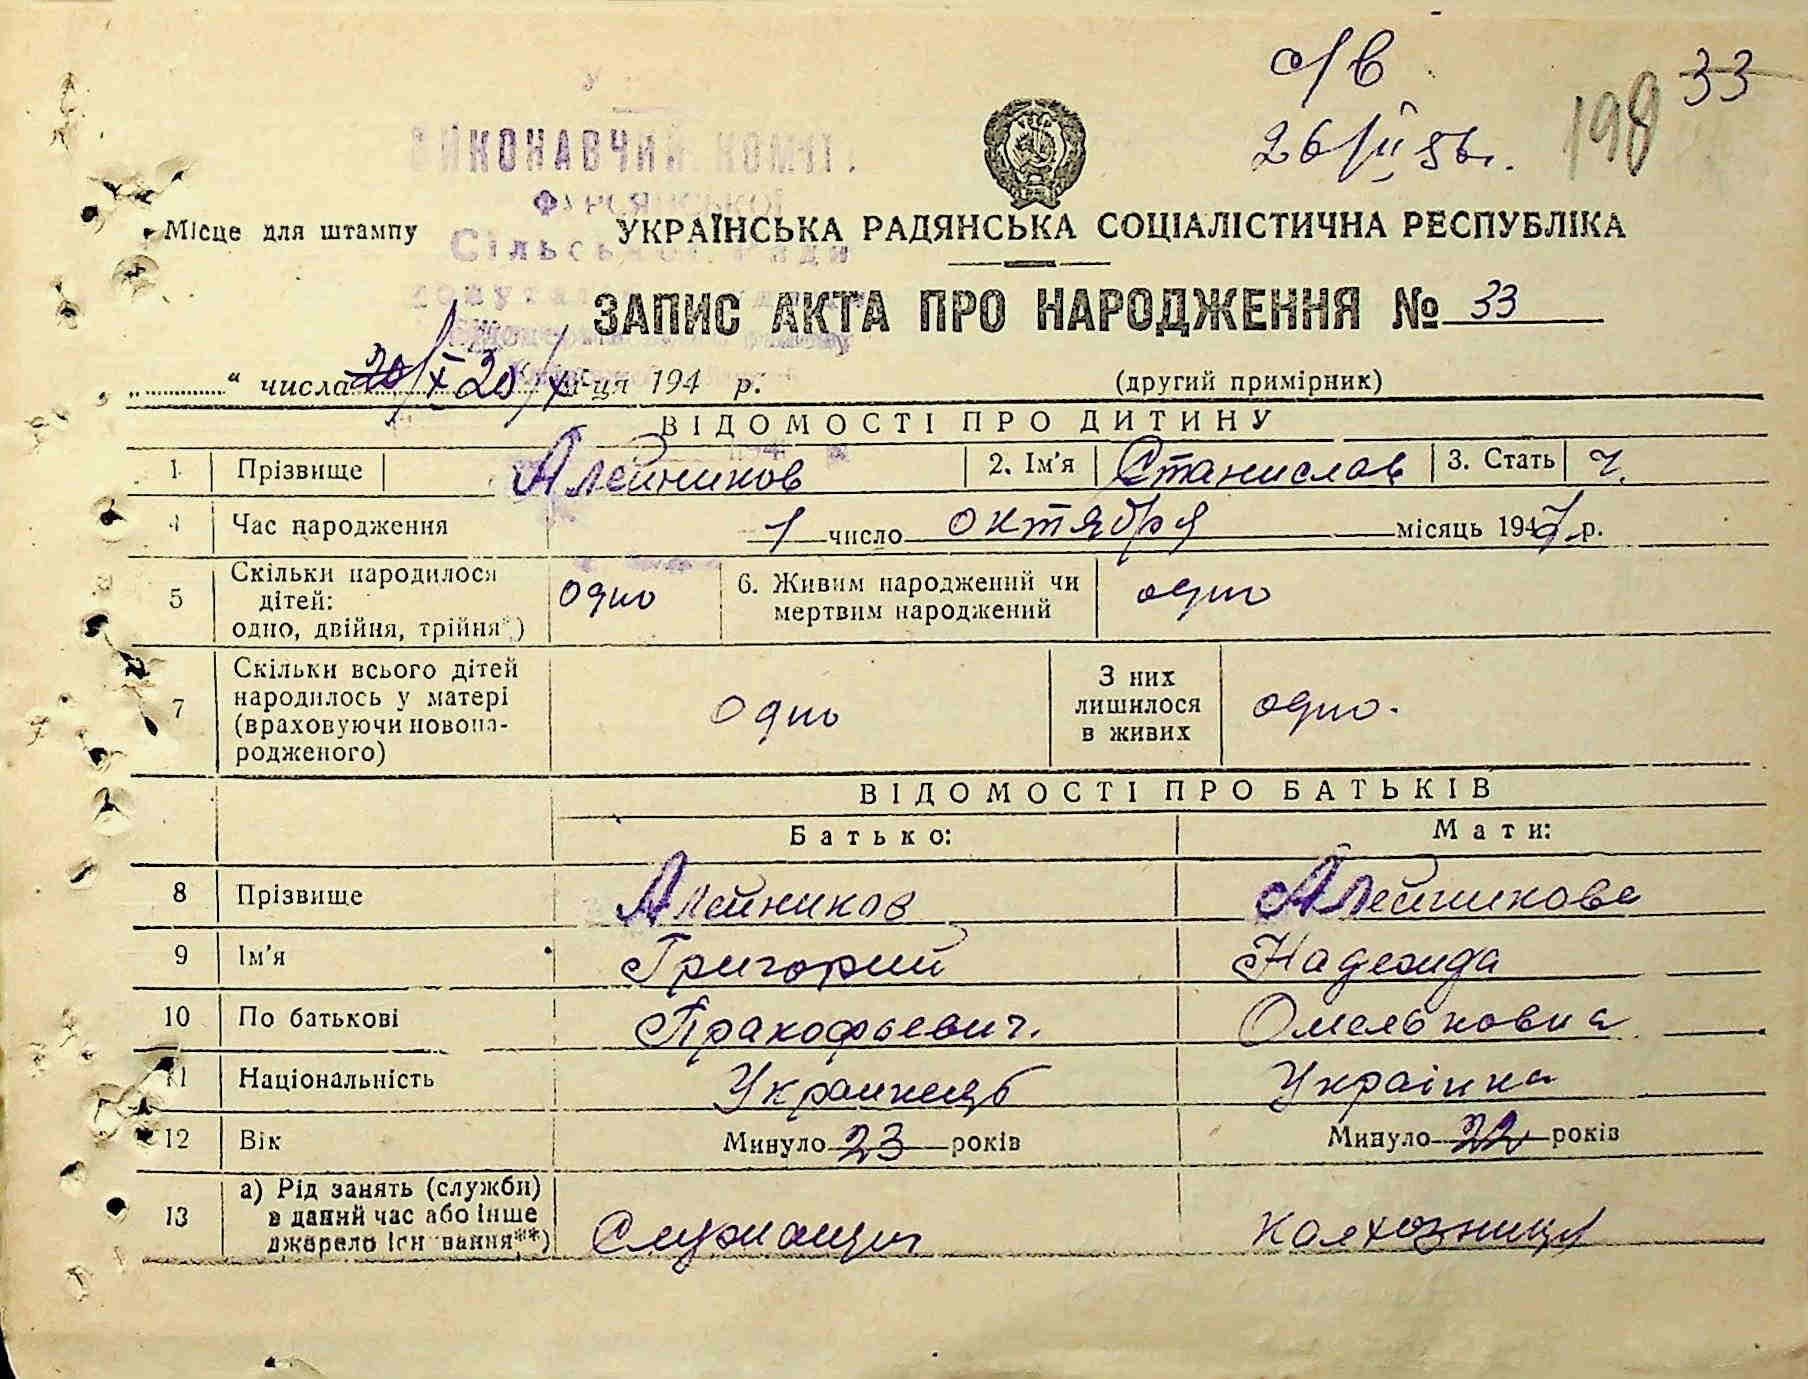 с/в 33
26/II 56г. 198
ВИКОНАВЧИЙ КОМІТ.
Місце для штампу
УКРАЇНСЬКА РАДЯНСЬКА СОЦІАЛІСТИЧНА РЕСПУБЛІКА
Сільської Ради
ЗАПИС АКТА ПРО НАРОДЖЕННЯ № 33
„ “ числа 20/X 20/X м-ця 194 р. (другий примірник)
ВІДОМОСТІ ПРО ДИТИНУ
1 Прізвище Алейников 2. Ім'я Станислав 3. Стать ч.
4 Час народження 1 число октября місяць 1947 р.
5 Скільки народилося дітей: одно, двійня, трійня*) одно 6. Живим народжений чи мертвим народжений одно
7 Скільки всього дітей народилось у матері (враховуючи новонародженого) одно З них лишилося в живих одно.
ВІДОМОСТІ ПРО БАТЬКІВ
Батько: Мати:
8 Прізвище Алейников Алейникова
9 Ім'я Григорий Надежда
10 По батькові Пракофьевич. Омельковна
11 Національність Украинець Украінка
12 Вік Минуло 23 років Минуло 22 років
13 а) Рід занять (служби) в даний час або інше джерело існування**) Служащий колхозница